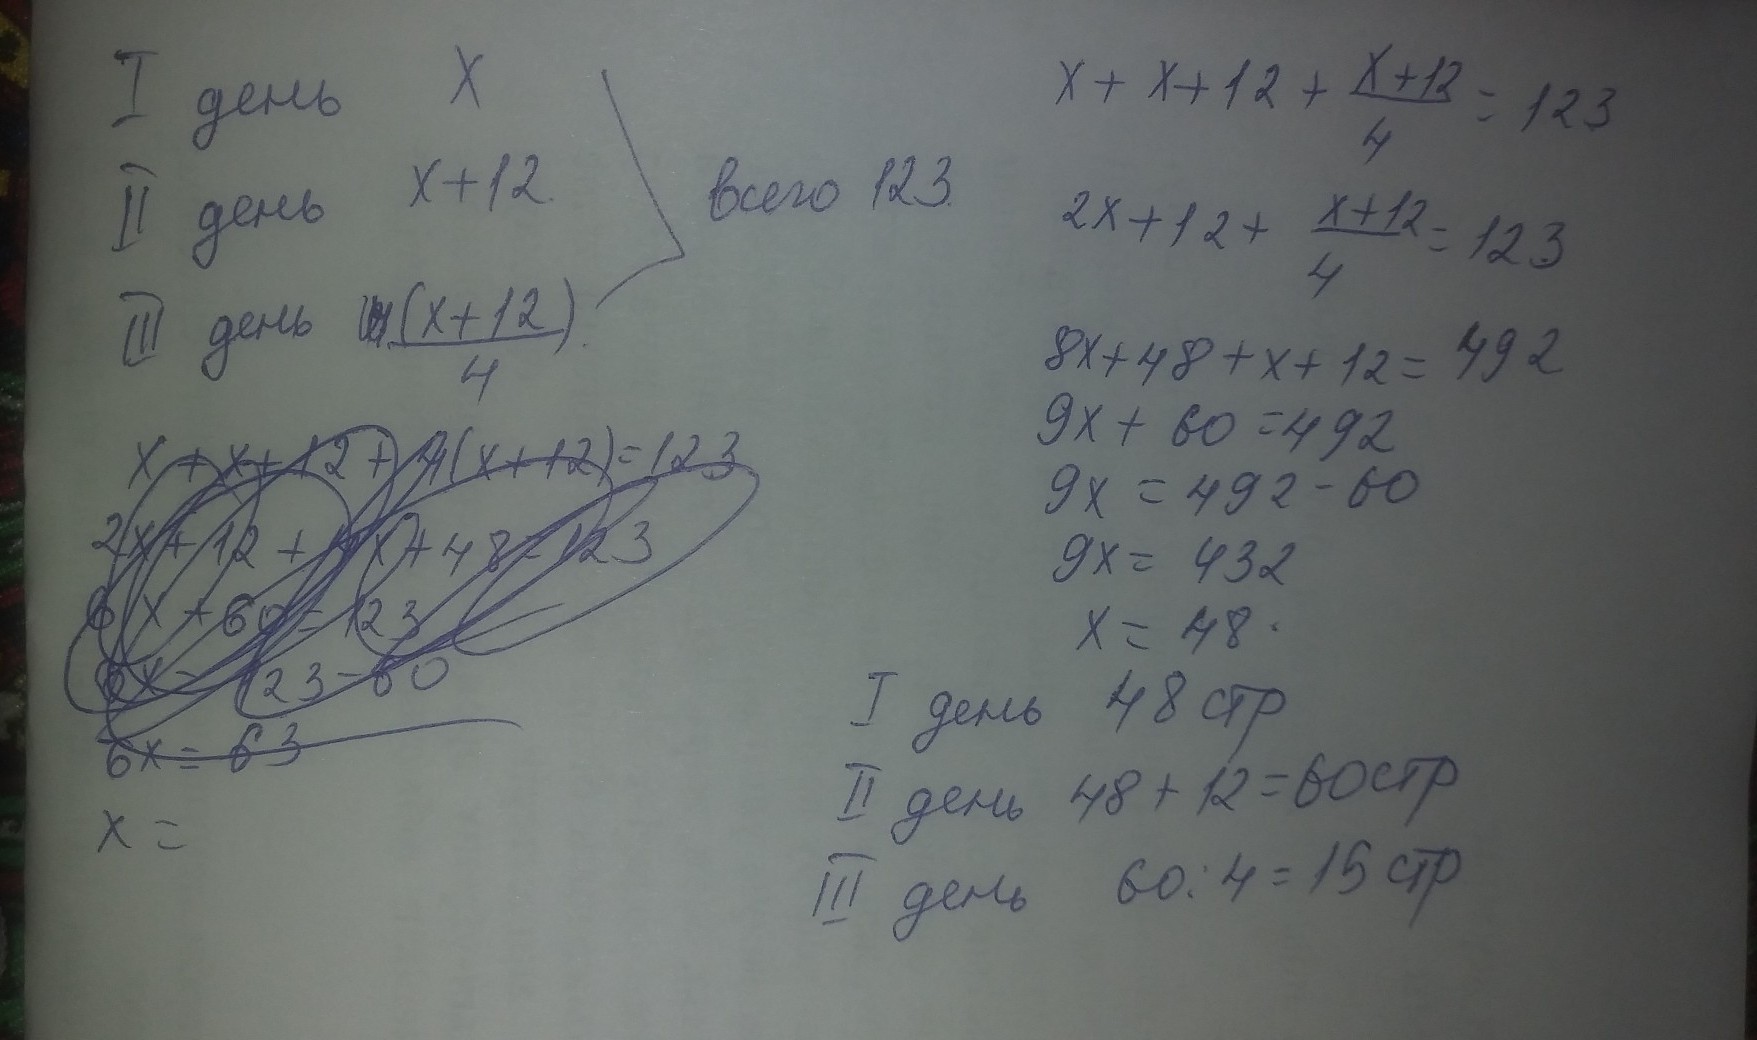 I день x
II день x+12
III день (x+12)
4
всего 123
x+x+12+4(x+12)=123
2x+12+4x+48=123
6x+60=123
6x=123-60
6x=63
x=
x+x+12+ x+12 = 123
4
2x+12+ x+12 = 123
4
8x+48+x+12=492
9x+60=492
9x=492-60
9x=432
x=48.
I день 48 стр
II день 48+12=60стр
III день 60:4=15 стр